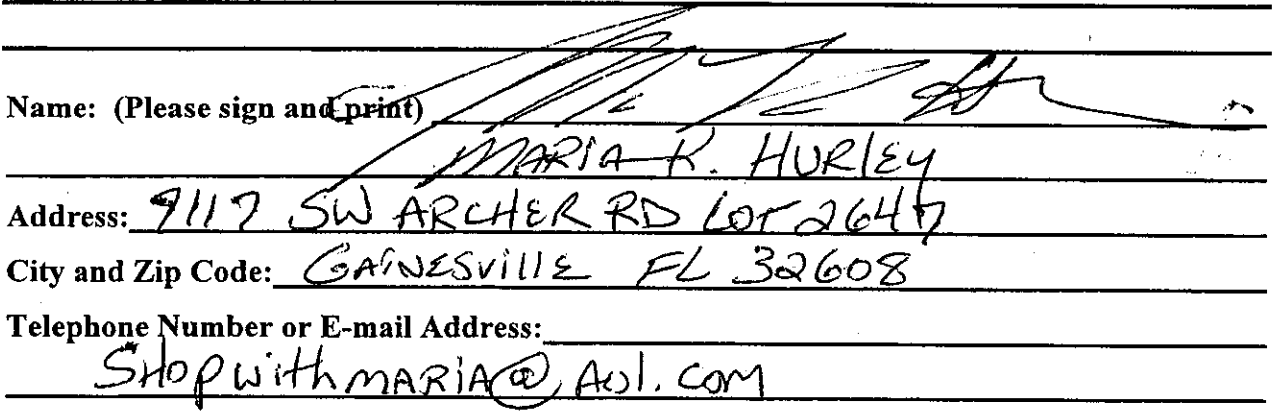 Name: (Please sign and print)
MARIA K. HURLEY
Address: 9117 SW ARCHER RD LOT 2647
City and Zip Code: GAINESVILLE FL 32608
Telephone Number or E-mail Address:
SHOPWithMARIA@AOl.COM